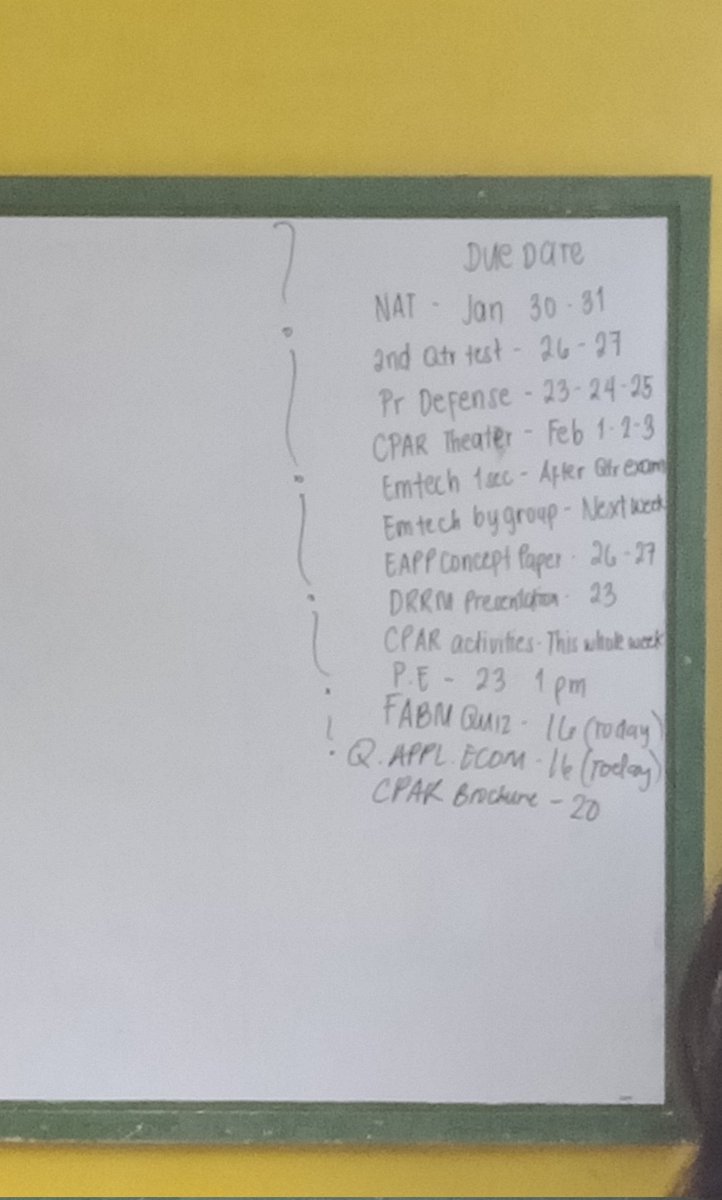 Due Date
NAT - Jan 30-31
2nd Qtr test - 26-27
Pr Defense - 23-24-25
CPAR Theater - Feb 1-2-3
Emtech 1sec - After Qtr exam
Emtech by group - Next week
EAPP Concept Paper - 26-27
DRRM Presentation - 23
CPAR activities - This whole week
P.E - 23 1pm
FABM Quiz - 16 (Today)
Q. APPL. ECON - 16 (Today)
CPAR Brochure - 20